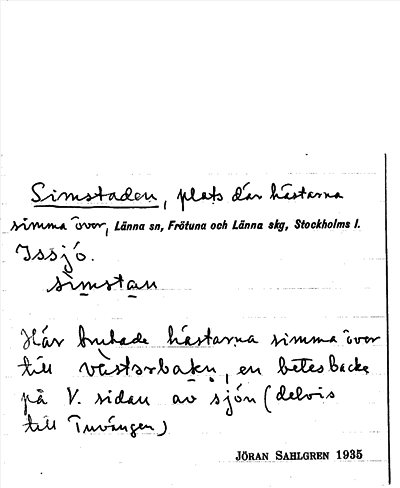 Simstaden, plats där hästarna
simma över, Länna sn, Frötuna och Länna skg, Stockholms l.
Issjö.
simstan
Här brukade hästarna simma över
till västerbakn, en betesbacke
på V. sidan av sjön (delvis
till Tuvängen)
JÖRAN SAHLGREN 1935